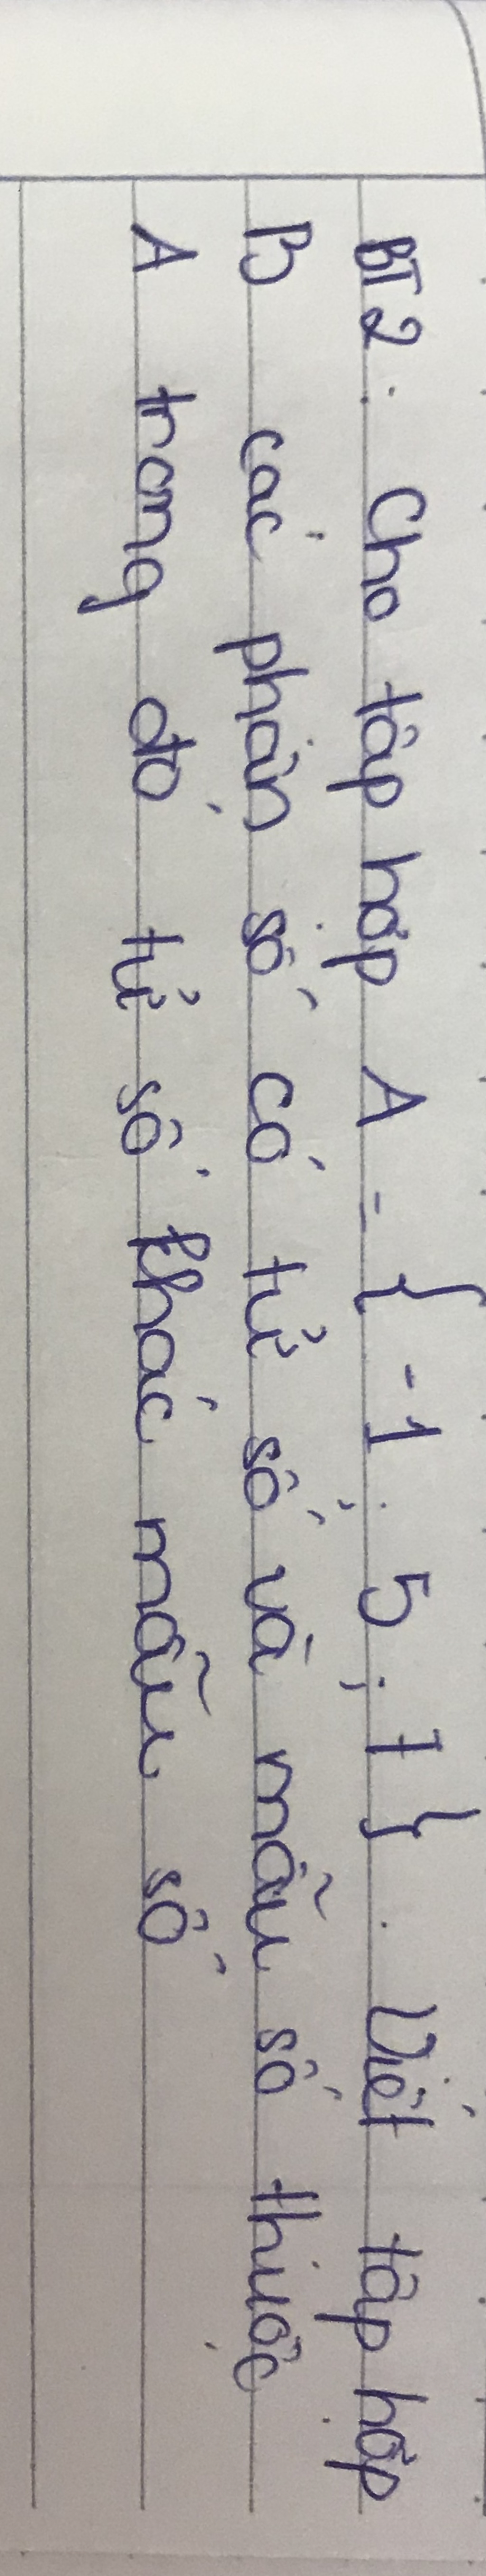 BT2: Cho tập hợp A = { -1 ; 5 ; 7 } . Viết tập hợp
B các phân số có tử số và mẫu số thuộc
A trong đó tử số khác mẫu số